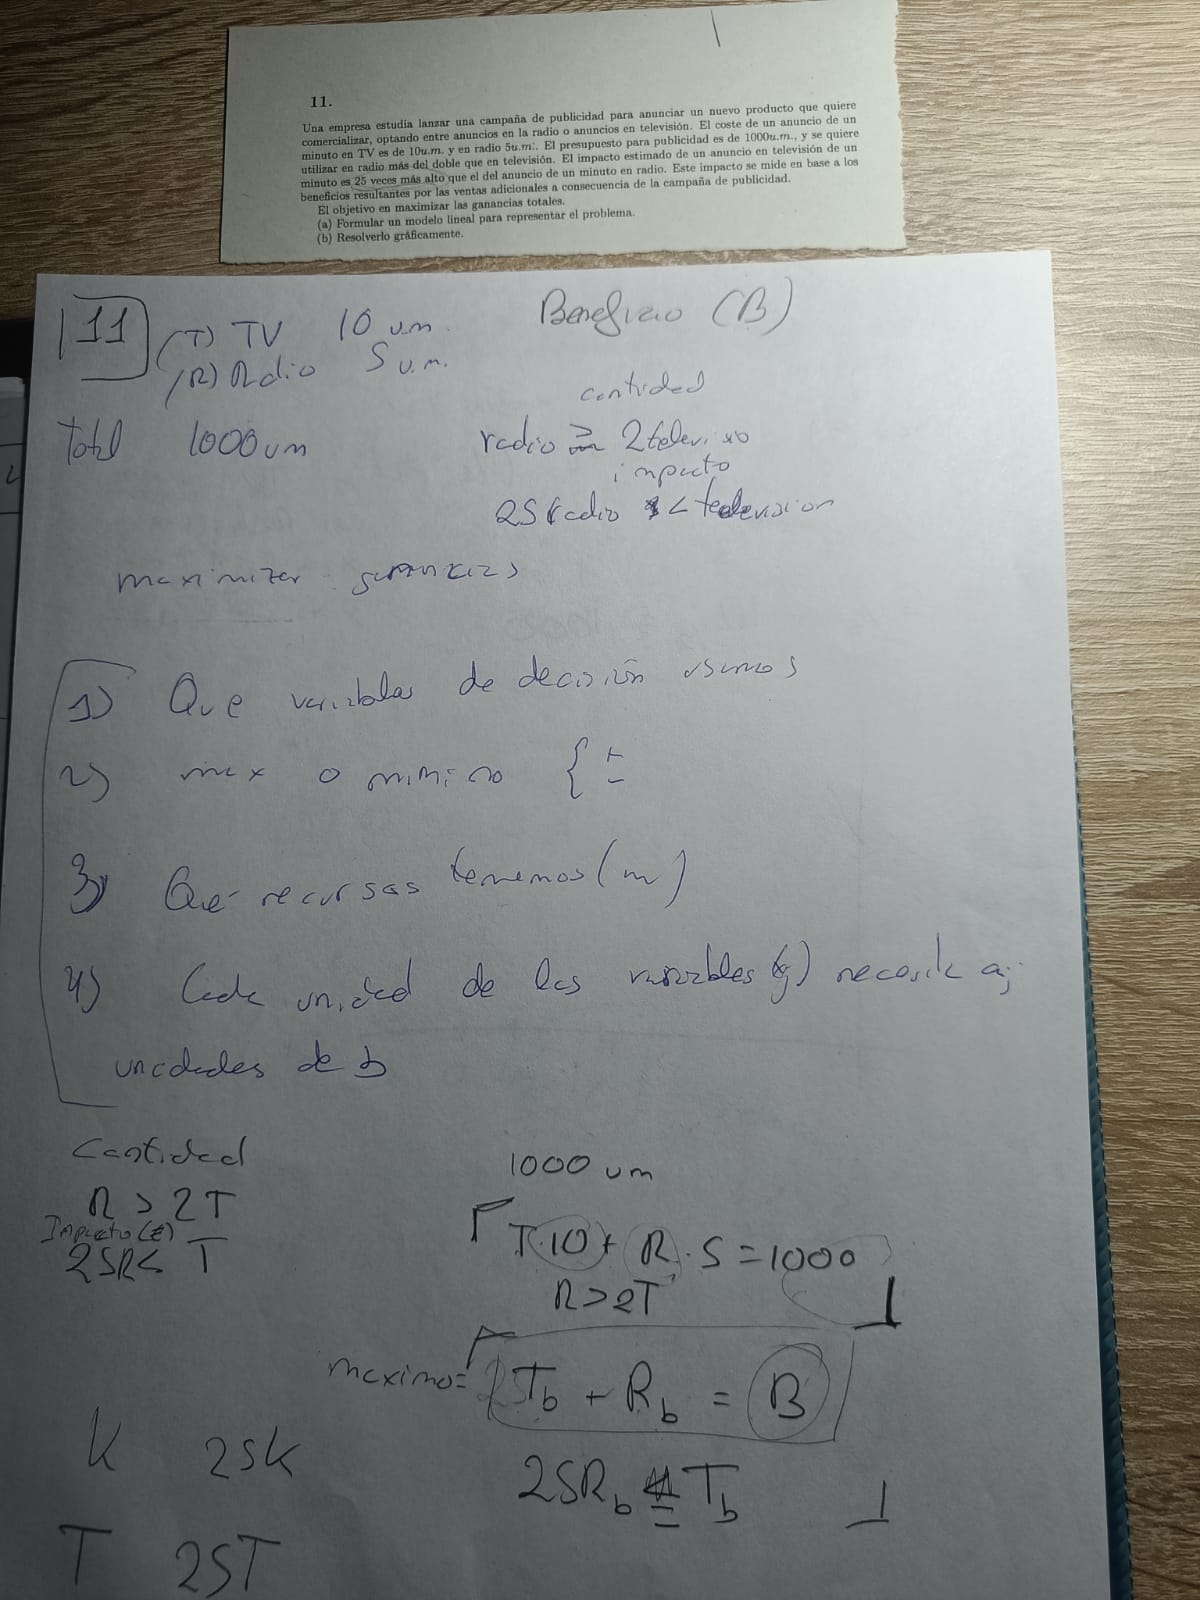 11.
Una empresa estudia lanzar una campaña de publicidad para anunciar un nuevo producto que quiere
comercializar, optando entre anuncios en la radio o anuncios en televisión. El coste de un anuncio de un
minuto en TV es de 10u.m. y en radio 5u.m.. El presupuesto para publicidad es de 1000u.m., y se quiere
utilizar en radio más del doble que en televisión. El impacto estimado de un anuncio en televisión de un
minuto es 25 veces más alto que el del anuncio de un minuto en radio. Este impacto se mide en base a los
beneficios resultantes por las ventas adicionales a consecuencia de la campaña de publicidad.
El objetivo en maximizar las ganancias totales.
(a) Formular un modelo lineal para representar el problema.
(b) Resolverlo gráficamente.
11 (T) TV 10 u.m. Benefizio (B)
(R) Radio 5 u.m.
cantidad
Total 1000 um radio ≥ 2
impacto
25 radio < television
maximizar ganancias
1) Que variables de decisión usamos
2) max o minimo { ±
3) Qué recursos tenemos (m)
4) Cada unidad de las variables necesita aj
unidades de b
Cantidad 1000 um
R > 2T
Impacto
25R < T T·10 + R·5 = 1000
R > 2T
maximo = 25Tb + Rb = B
K 25K 25Rb = Tb
T 25T